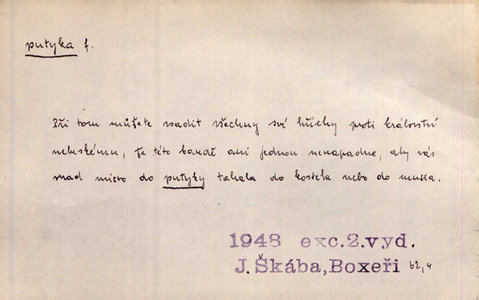 putyka f.
Při tom můžete vsadit všechny své hříchy proti království
nebeskému, že této bandě ani jednou nenapadne, aby vás
snad místo do putyky tahala do kostela nebo do musea.
1948 exc.2.vyd.
J.Škába,Boxeři 62,4